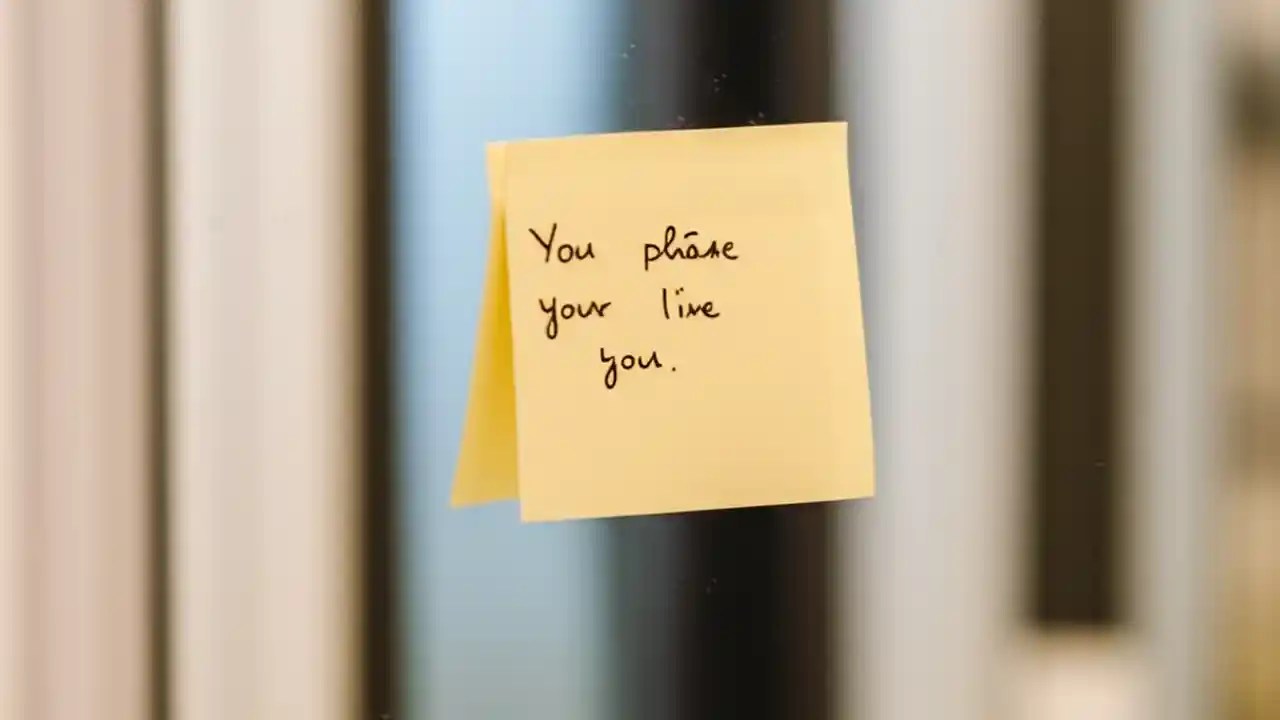 You phase
your live
you.